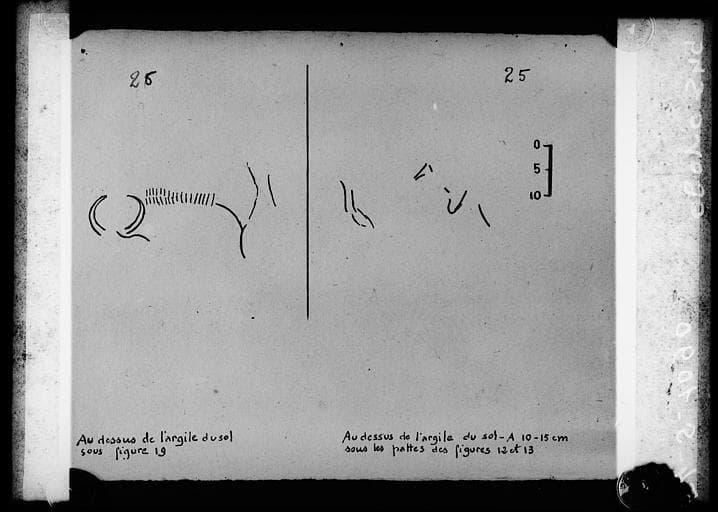 26
25
0
5
10
Au dessus de l'argile du sol
sous figure 19
Au dessus de l'argile du sol - A 10-15 cm
sous les pattes des figures 12 et 13